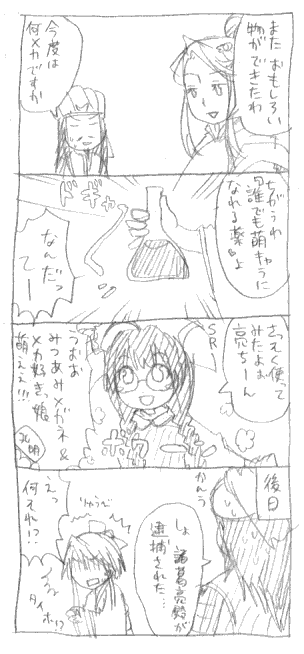 また おもしろい
物が できたわ
今度は
何メカですか
ちがうわ
誰でも萌キャラに
なれる薬よ
ドギャ
なんだっ
てー
さっそく使って
みたよぉ
亮ちーん
SRー
つおぉ
みつあみメガネ&
メカ好きっ娘
萌えぇ!!!
孔明
後日
かんう
しょ 諸葛亮殿が
逮捕された…
りゅうび
えっ
何それ!?
タイホ!?